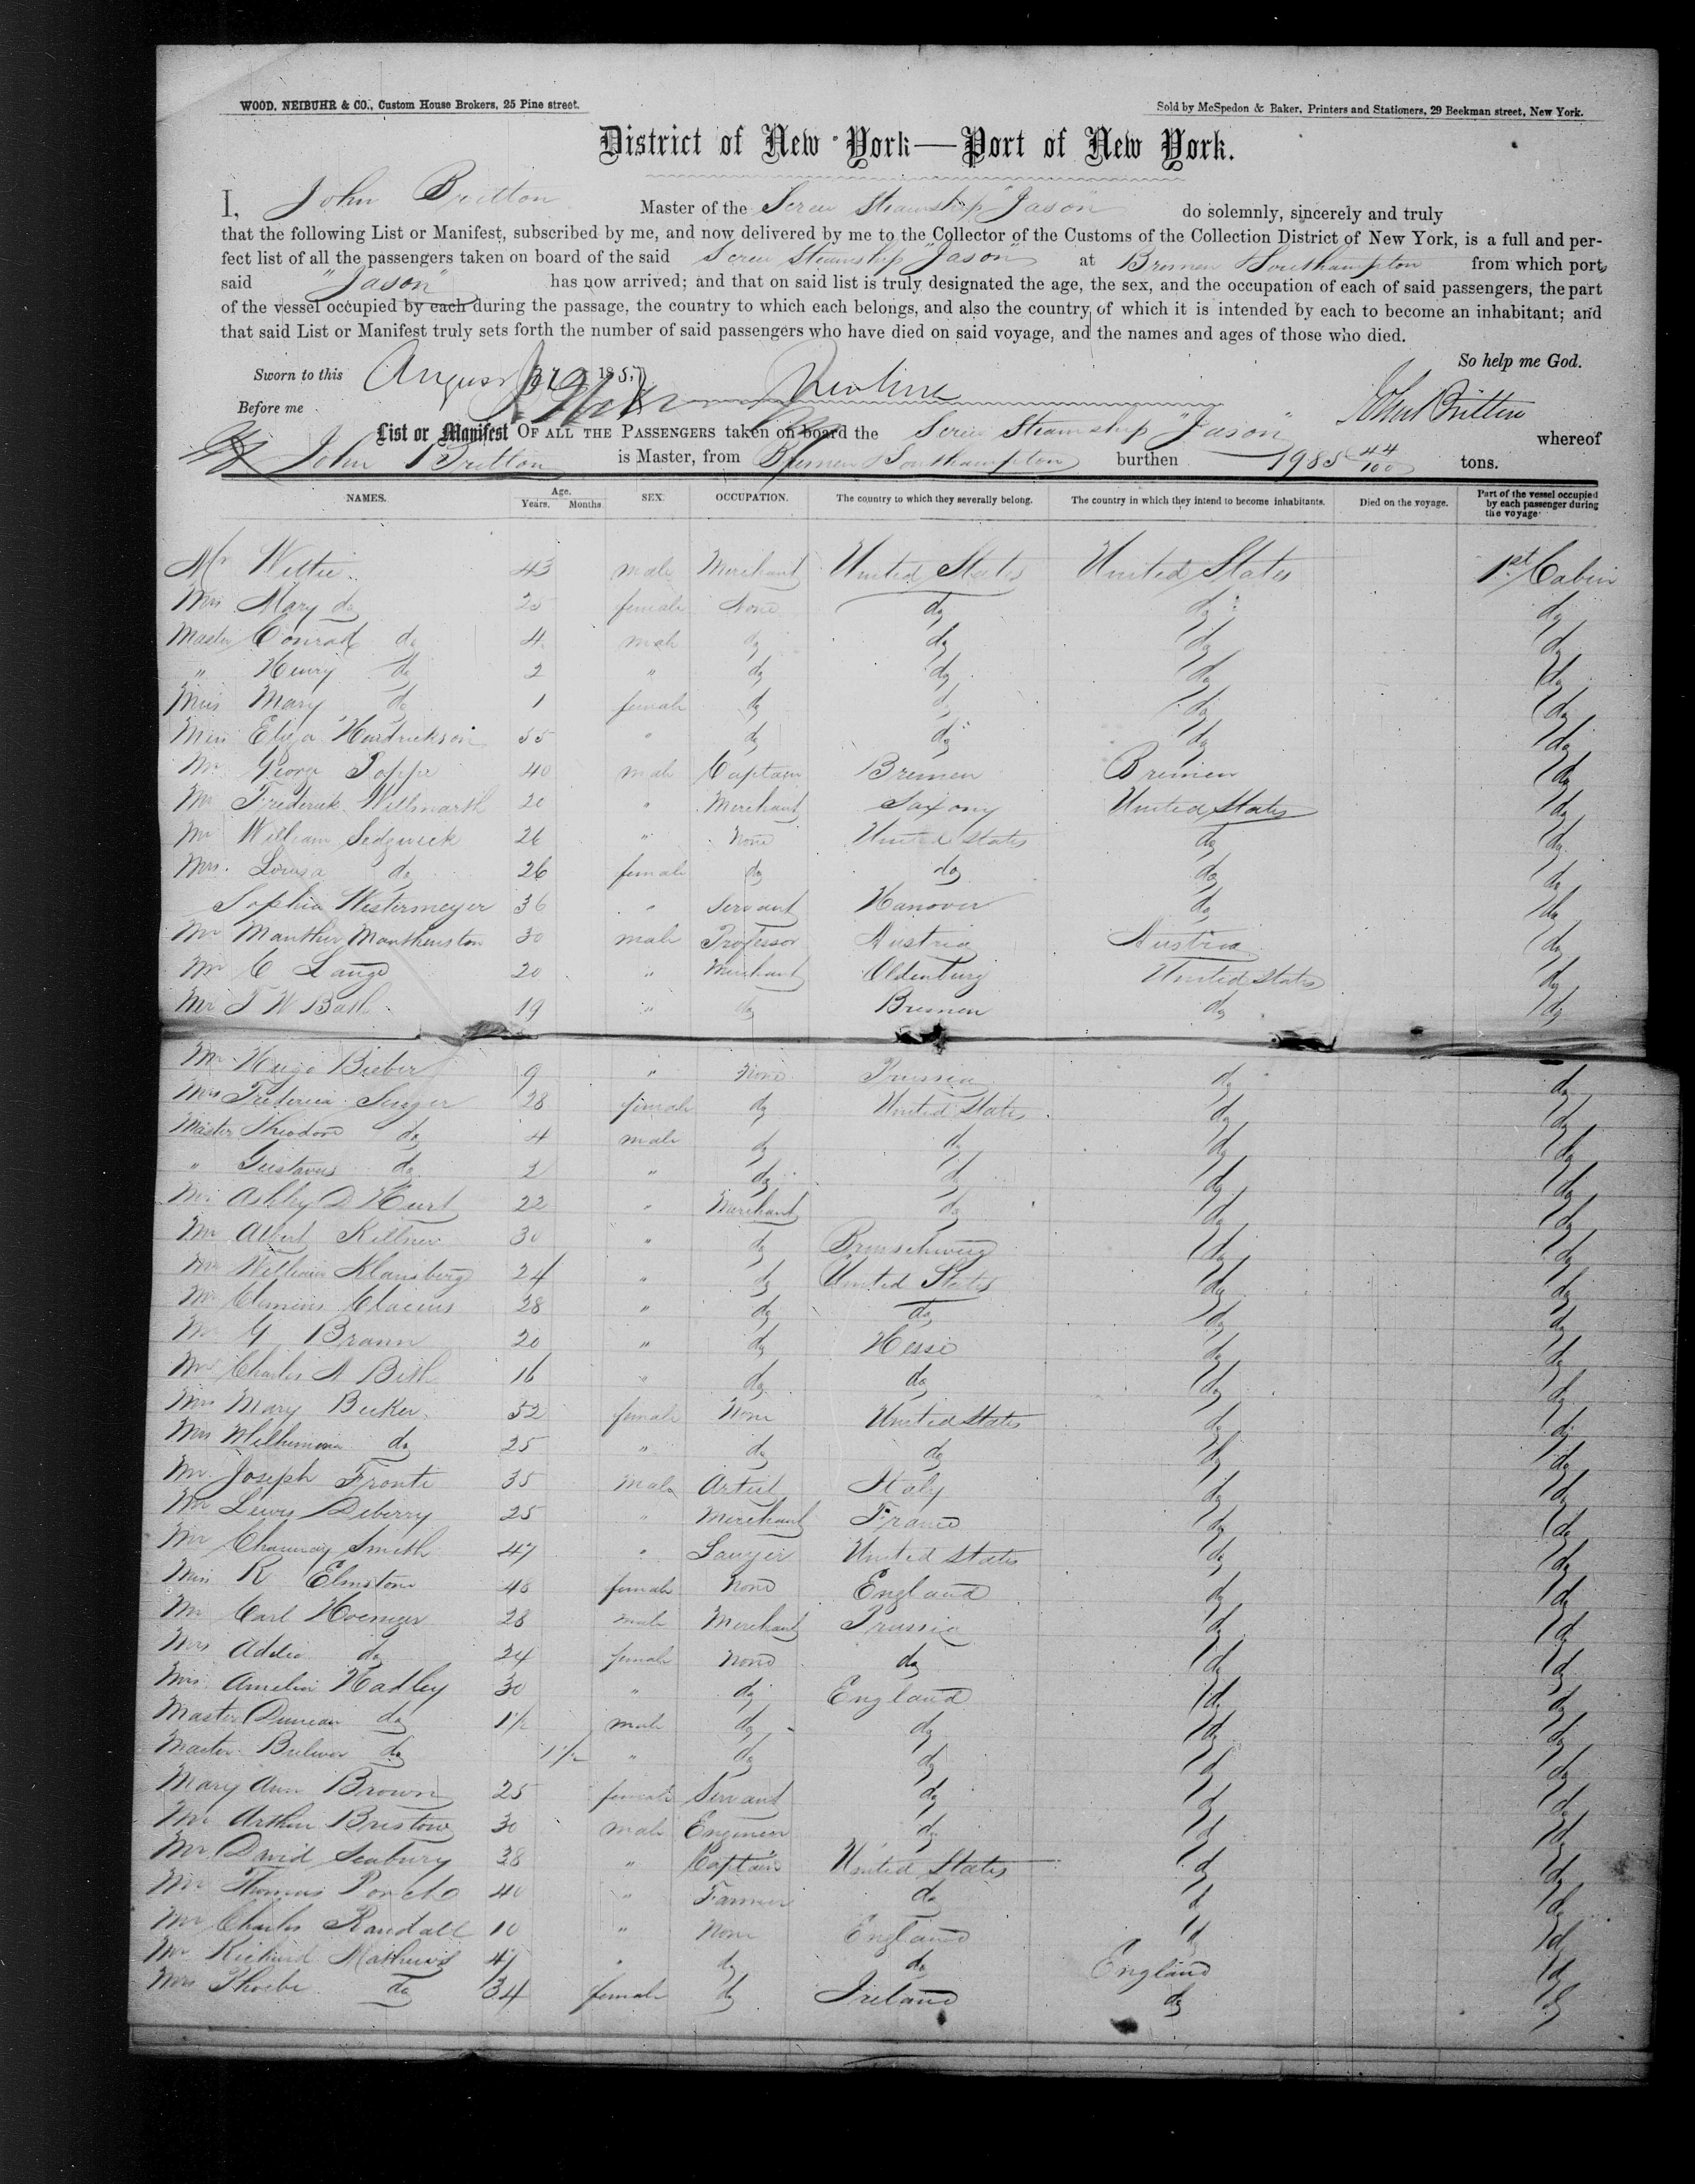 WOOD, NEIBUHR & CO., Custom House Brokers, 25 Pine street. Sold by McSpedon & Baker, Printers and Stationers, 29 Beekman street, New York.
District of New York—Port of New York.
I, John Britton Master of the Screw Steamship "Jason" do solemnly, sincerely and truly
that the following List or Manifest, subscribed by me, and now delivered by me to the Collector of the Customs of the Collection District of New York, is a full and per-
fect list of all the passengers taken on board of the said Screw Steamship "Jason" at Bremen & Southampton from which ports
said "Jason" has now arrived; and that on said list is truly designated the age, the sex, and the occupation of each of said passengers, the part
of the vessel occupied by each during the passage, the country to which each belongs, and also the country of which it is intended by each to become an inhabitant; and
that said List or Manifest truly sets forth the number of said passengers who have died on said voyage, and the names and ages of those who died.
So help me God.
Sworn to this August 185
Before me John Britton
List or Manifest OF ALL THE PASSENGERS taken on board the Screw Steamship "Jason" whereof
John Britton is Master, from Bremen & Southampton burthen 1985 44/100 tons.
NAMES. Age. Years. Months. SEX. OCCUPATION. The country to which they severally belong. The country in which they intend to become inhabitants. Died on the voyage. Part of the vessel occupied by each passenger during the voyage
Mr 43 male Merchant United States United States 1st Cabin
Mrs Mary do 25 female None do do do
Master Conrad do 4 male do do do do
" Henry do 2 " do do do do
Miss Mary do 1 female do do do do
Miss Eliza 55 " do do do do
Mr George Poppe 40 male Captain Bremen Bremen do
Mr Frederick Willmarth 20 " Merchant Saxony United States do
Mr William Sedgwick 26 " None United States do do
Mrs. Louisa do 26 female do do do do
Sophia Westermeyer 36 " Servant Hanover do do
Mr 30 male Professor Austria Austria do
Mr C Lange 20 " Merchant Oldenburg United States do
Mr F W 19 " do Bremen do do
Mr Hugo Bieber 9 " None Prussia do do
Mrs Frederica Singer 28 female do United States do do
Master Theodore do 4 male do do do do
" Gustavus do 2 " do do do do
Mr Ashley D Hurt 22 " Merchant do do do
Mr Albert 30 " do Brunschweig do do
Mr William Klansberg 24 " do United States do do
Mr Clemens 28 " do do do do
Mr G Braun 20 " do Hesse do do
Mr Charles A 16 " do do do do
Mrs Mary Becker 52 female None United States do do
Mrs Wilhemina do 25 " do do do do
Mr Joseph Fronte 35 male Artist Italy do do
Mr Lewis Deberry 25 " Merchant France do do
Mr Chauncey Smith 47 " Lawyer United States do do
Miss R Elmstone 48 female None England do do
Mr Carl Hoeninger 28 male Merchant Prussia do do
Mrs Addie do 24 female None do do do
Mrs Amelia Hadley 30 " do England do do
Master Duncan do 1 1/2 male do do do do
Master Bulwer do 1 1/2 " do do do do
Mary Ann Brown 25 female Servant do do do
Mr Arthur Bristow 30 male Engineer do do do
Mr David Seabury 38 " Captain United States do do
Mr Thomas 40 " Farmer do do do
Mr Charles Randall 10 " None England do do
Mr Richard Mathews 47 " do do England do
Mrs Phoebe do 34 female do Ireland do do